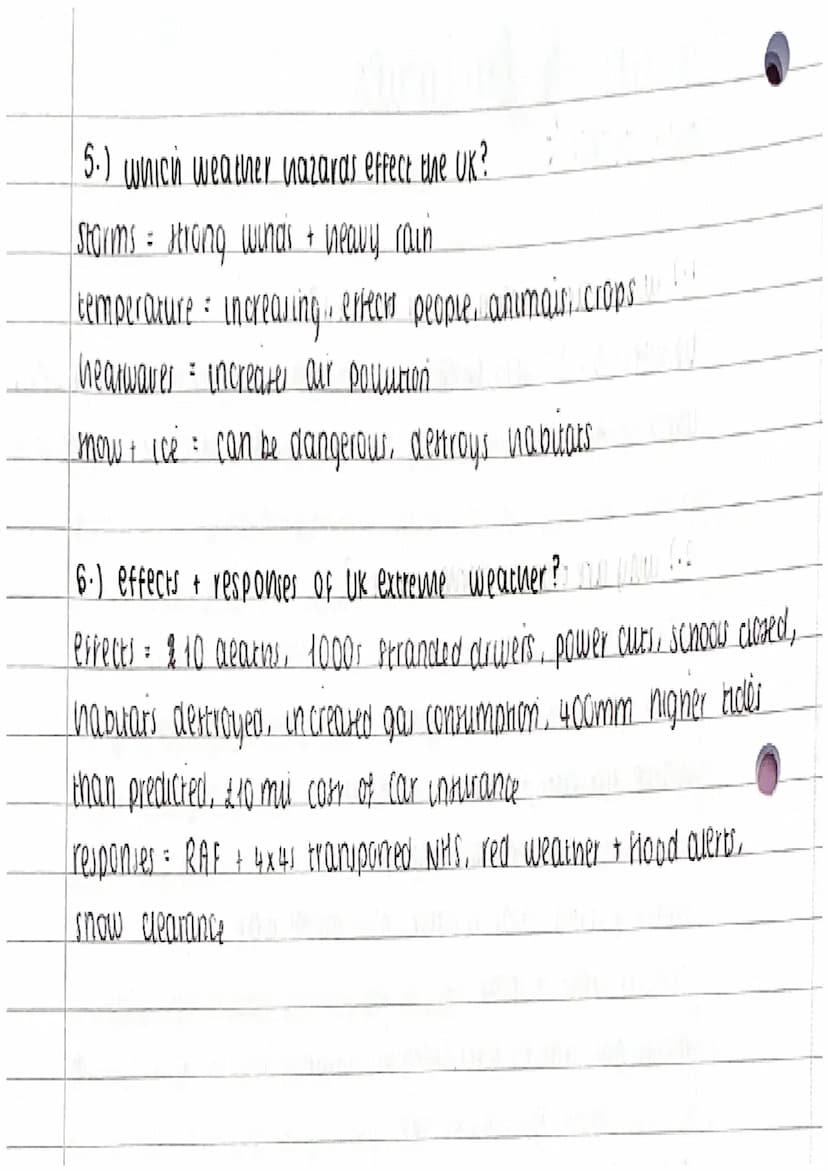 5.) which weather hazards effect the UK?
storms = strong winds + heavy rain
temperature = increasing, effects people, animals, crops
heatwaves = increases air pollution
snow + ice = can be dangerous, destroys habitats
6.) effects + responses of UK extreme weather?
effects = 10 deaths, 1000s stranded drivers, power cuts, schools closed,
habitats destroyed, increased gas consumption, 400mm higher tides
than predicted, £10 mil cost of car insurance
responses = RAF + 4x4s transported NHS, red weather + flood alerts,
snow clearance